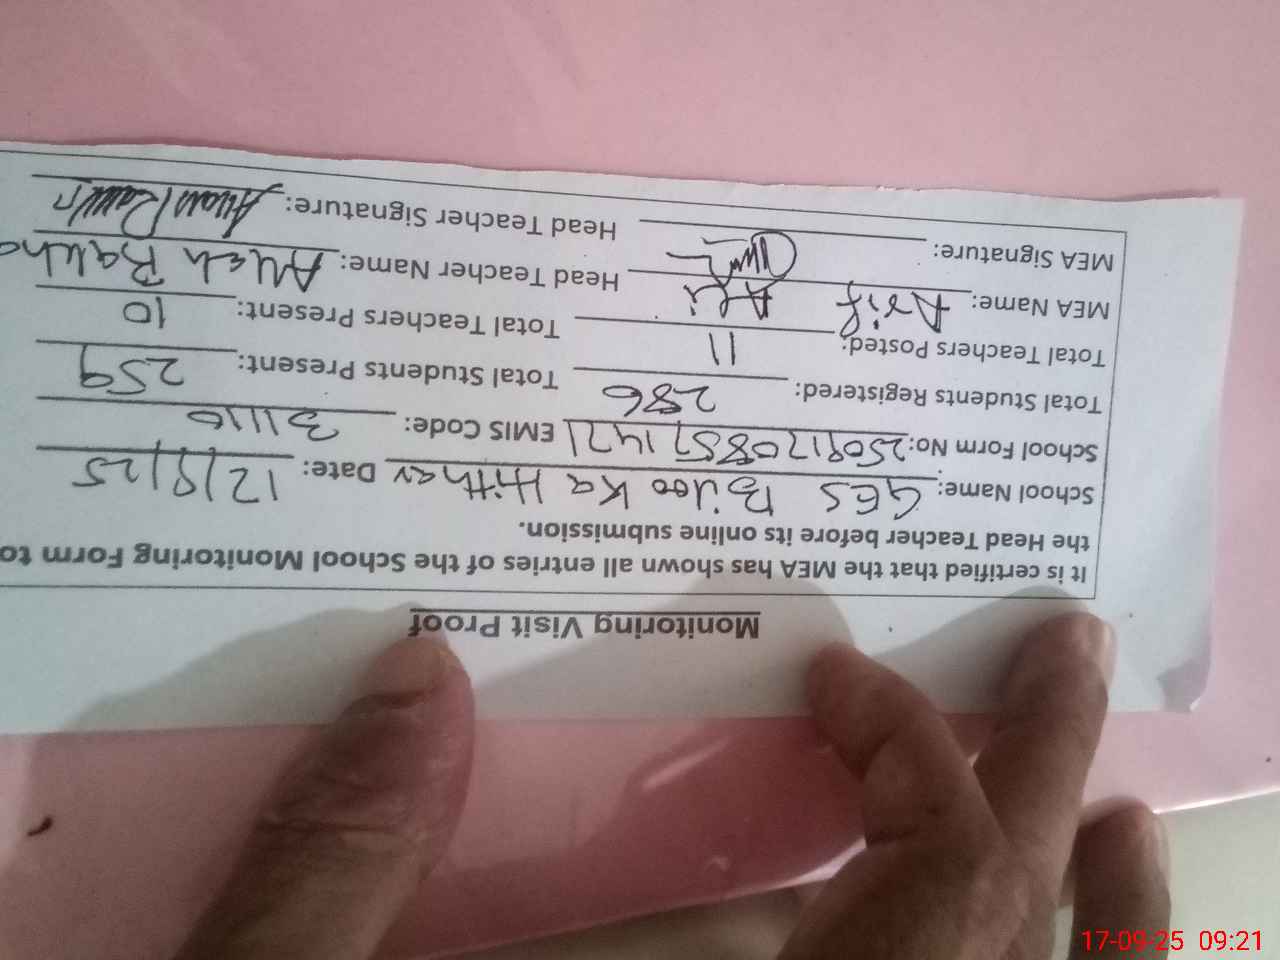 Monitoring Visit Proof
It is certified that the MEA has shown all entries of the School Monitoring Form to
the Head Teacher before its online submission.
School Name: GES Biloo Ka Hithar Date: 12/9/25
School Form No: 25091208571471 EMIS Code: 31116
Total Students Registered: 286 Total Students Present: 259
Total Teachers Posted: 11 Total Teachers Present: 10
MEA Name: Asif Ali Head Teacher Name: Allah Rakha
MEA Signature: Head Teacher Signature:
17-09-25 09:21